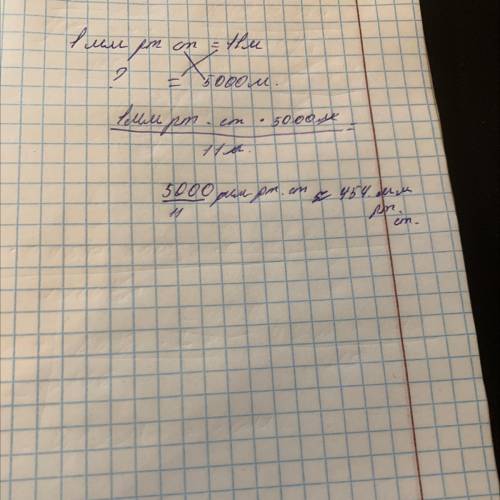 1 мм рт ст = 11м
? = 5000м.
1мм рт. ст. · 5000м =
11м.
5000 мм рт. ст ≈ 454 мм
11 рт.
ст.